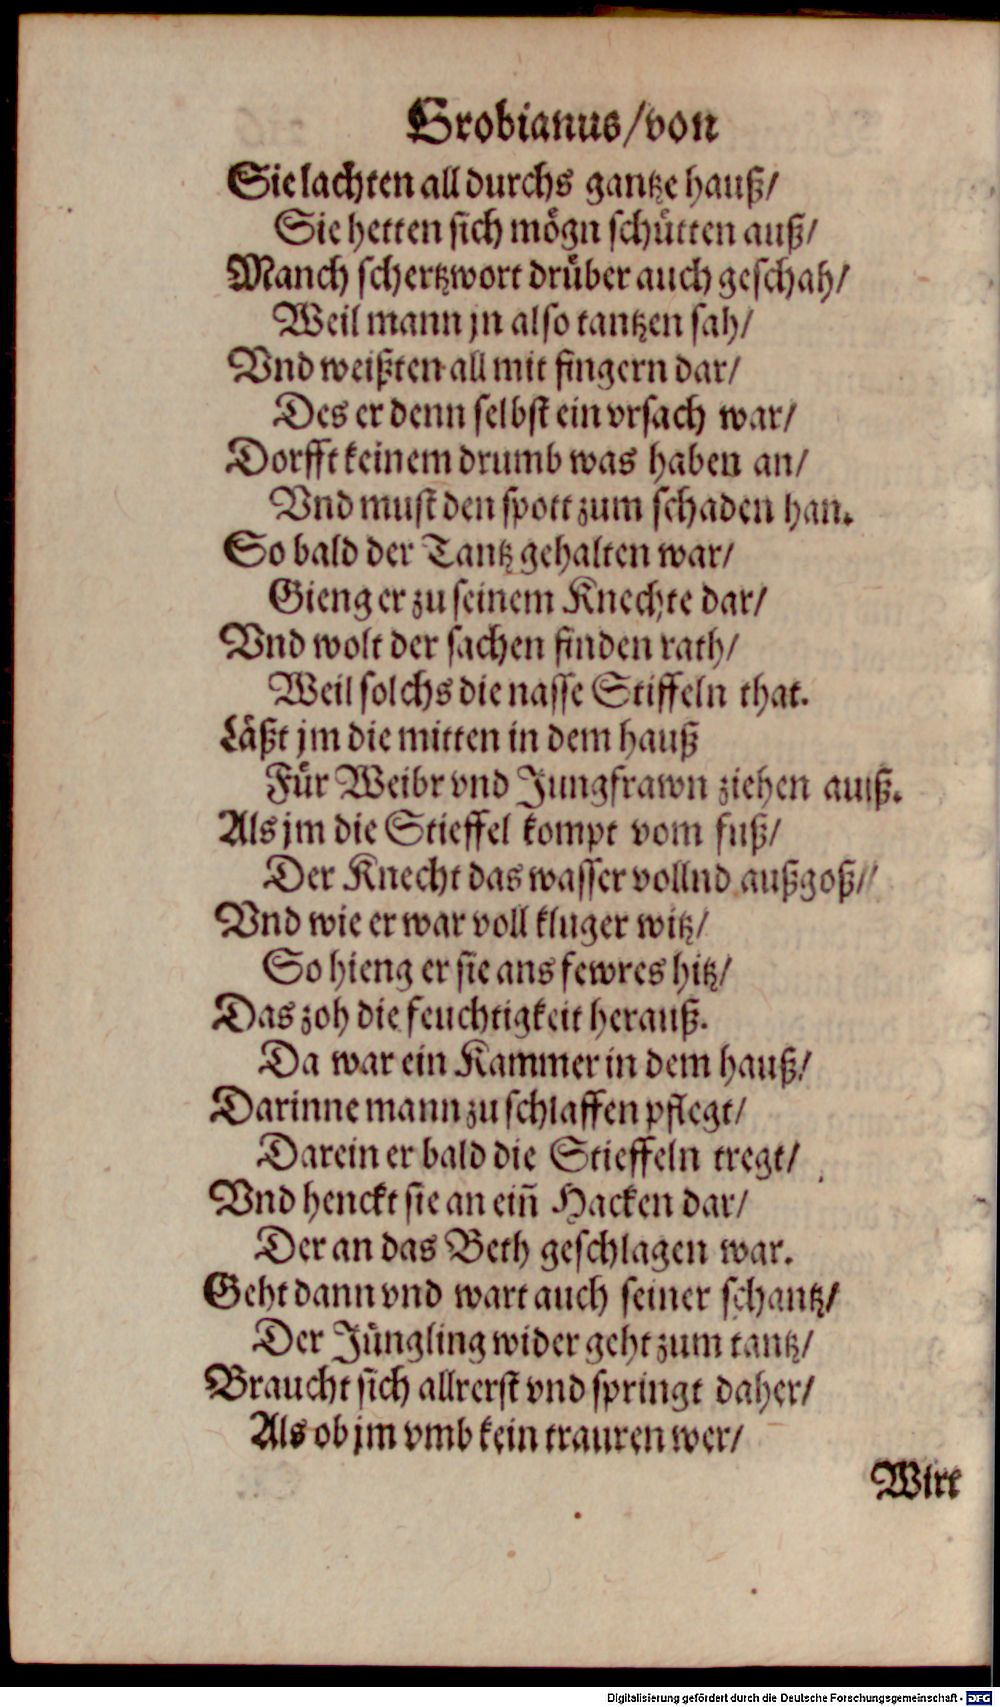 Grobianus/von
Sie lachten all durchs gantze hauß/
Sie hetten sich mögn schütten auß/
Manch schertzwort drüber auch geschah/
Weil mann jn also tantzen sah/
Vnd weißten all mit fingern dar/
Des er denn selbst ein vrsach war/
Dorfft keinem drumb was haben an/
Vnd must den spott zum schaden han.
So bald der Tantz gehalten war/
Gieng er zu seinem Knechte dar/
Vnd wolt der sachen finden rath/
Weil solchs die nasse Stiffeln that.
Läßt jm die mitten in dem hauß
Für Weibr vnd Jungfrawn ziehen auß.
Als jm die Stieffel kompt vom fuß/
Der Knecht das wasser vollnd außgoß/
Vnd wie er war voll kluger witz/
So hieng er sie ans fewres hitz/
Das zoh die feuchtigkeit herauß.
Da war ein Kammer in dem hauß/
Darinne mann zu schlaffen pflegt/
Darein er bald die Stieffeln tregt/
Vnd henckt sie an eiñ Hacken dar/
Der an das Beth geschlagen war.
Geht dann vnd wart auch seiner schantz/
Der Jüngling wider geht zum tantz/
Braucht sich allrerst vnd springt daher/
Als ob jm vmb kein trauren wer/
Wirt
Digitalisierung gefördert durch die Deutsche Forschungsgemeinschaft - DFG